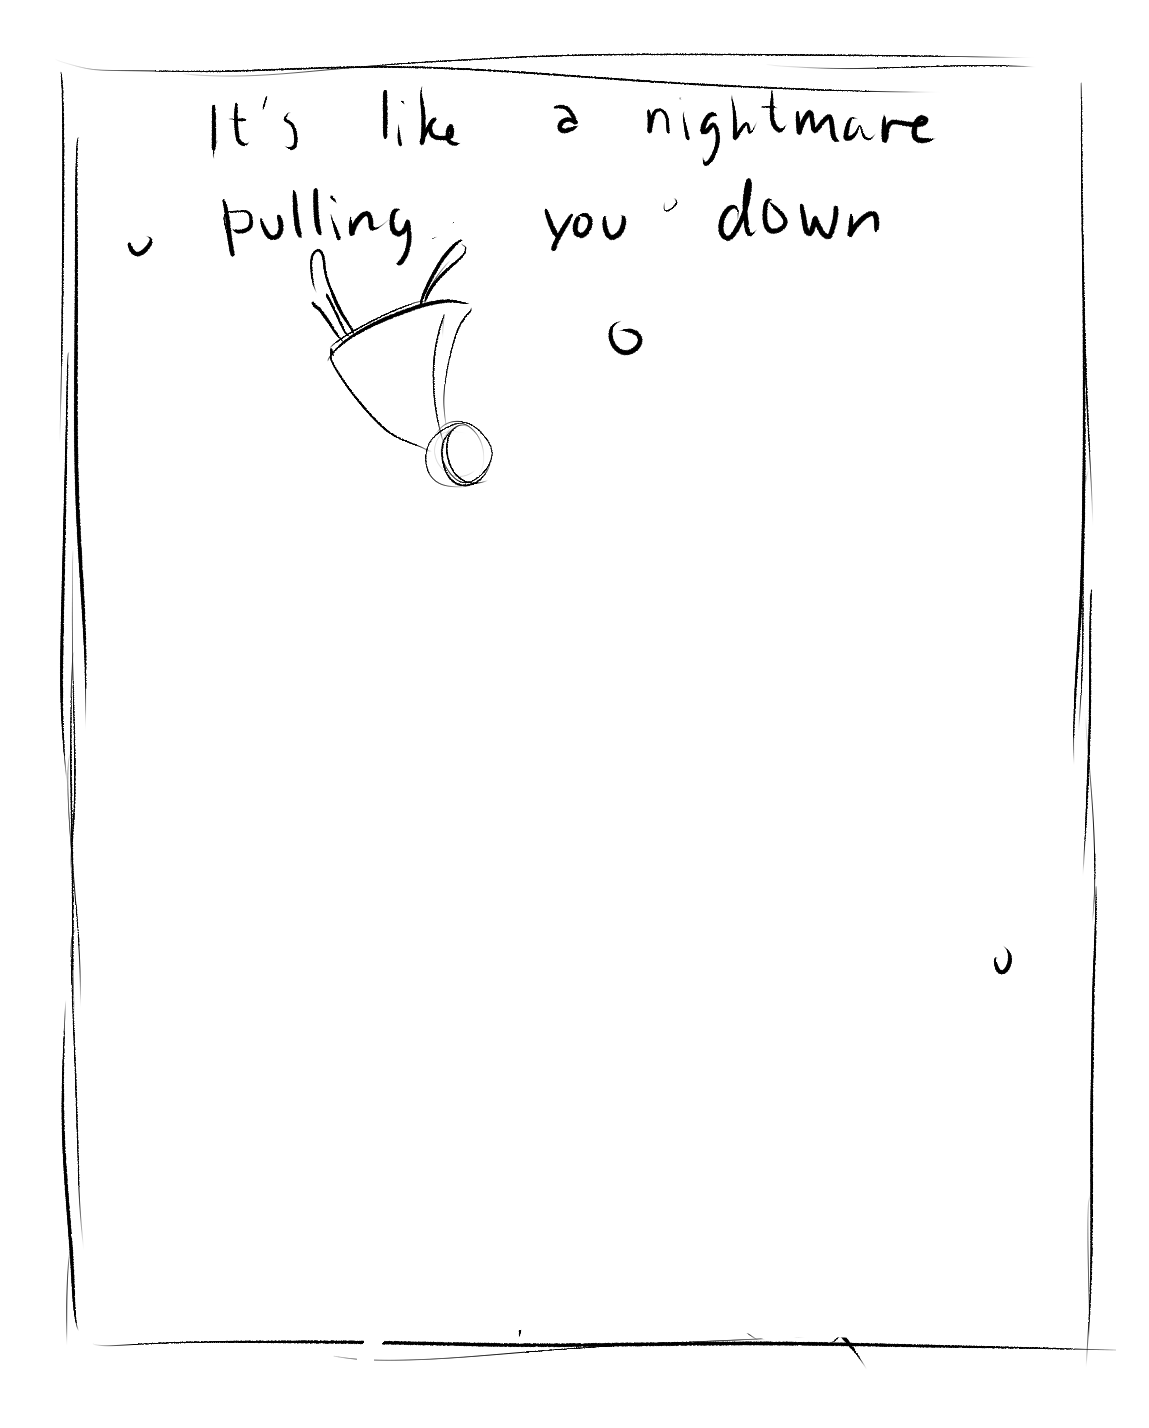 It's like a nightmare
pulling you down